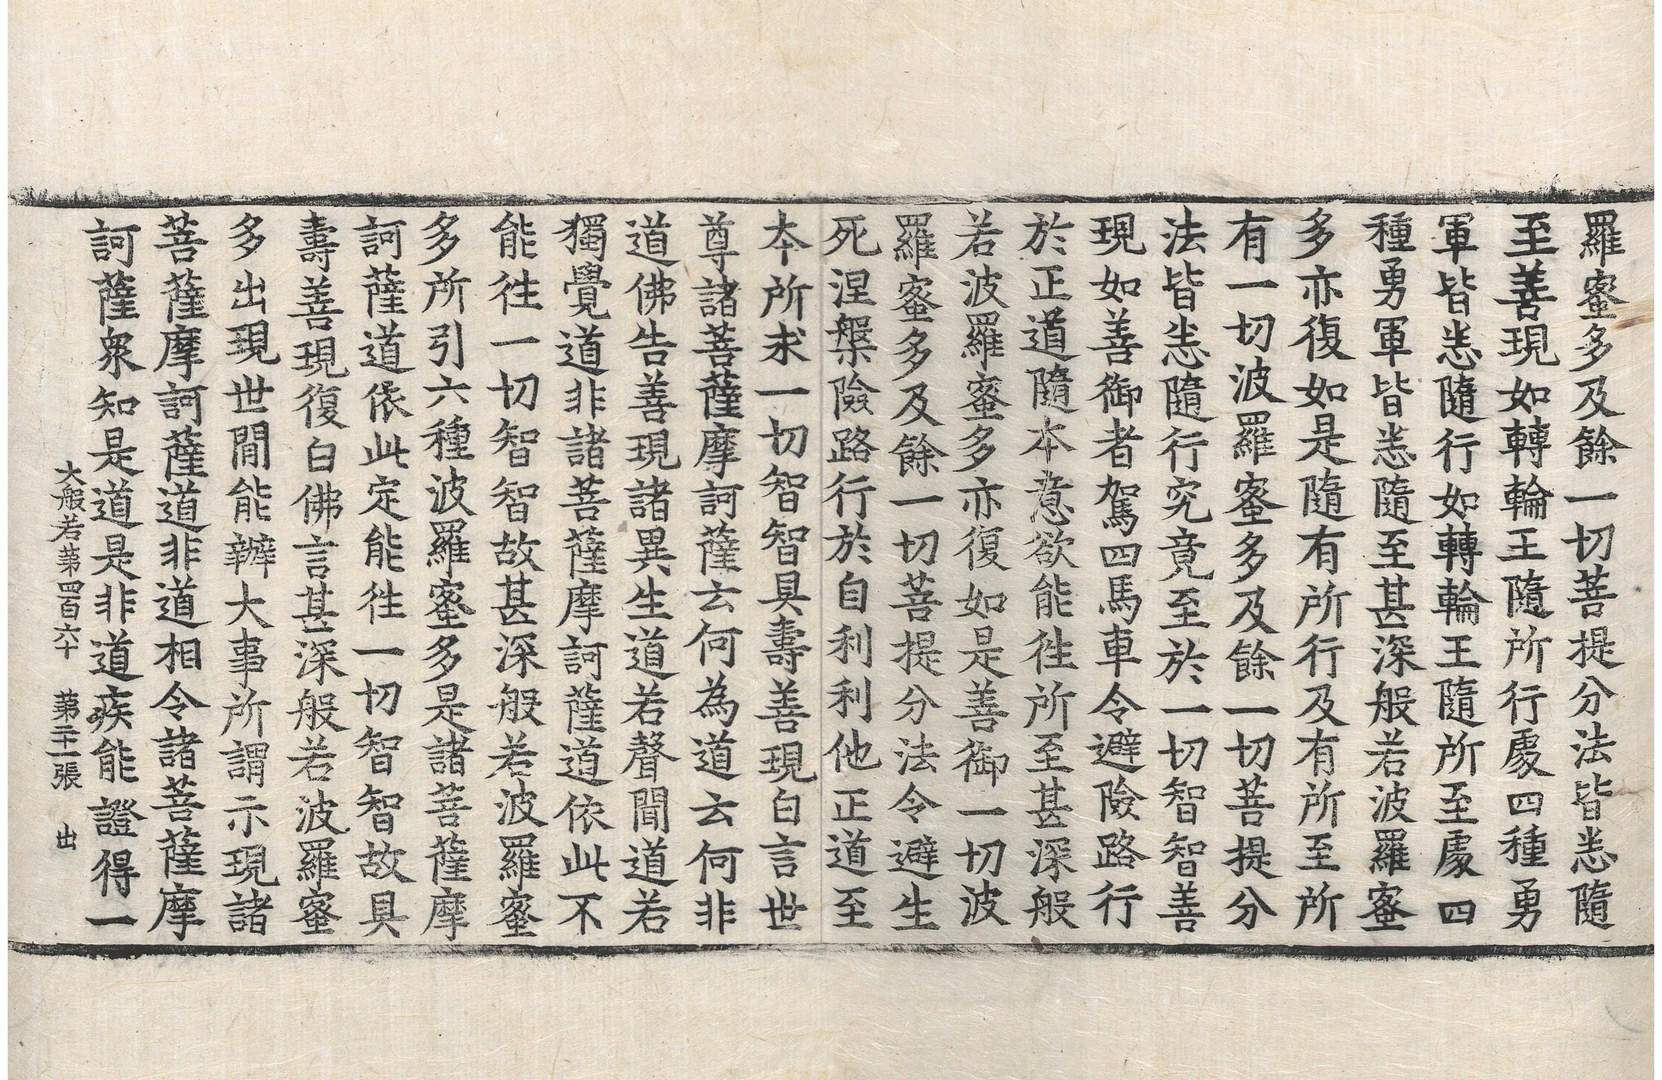 羅蜜多及餘一切菩提分法皆悉隨
至善現如轉輪王隨所行處四種勇
軍皆悉隨行如轉輪王隨所至處四
種勇軍皆悉隨至甚深般若波羅蜜
多亦復如是隨有所行及有所至所
有一切波羅蜜多及餘一切菩提分
法皆悉隨行究竟至於一切智智善
現如善御者駕四馬車令避險路行
於正道隨本意欲能往所至甚深般
若波羅蜜多亦復如是善御一切波
羅蜜多及餘一切菩提分法令避生
死涅槃險路行於自利利他正道至
本所求一切智智具壽善現白言世
尊諸菩薩摩訶薩云何為道云何非
道佛告善現諸異生道若聲聞道若
獨覺道非諸菩薩摩訶薩道依此不
能徃一切智智故甚深般若波羅蜜
多所引六種波羅蜜多是諸菩薩摩
訶薩道依此定能徃一切智智故具
壽善現復白佛言甚深般若波羅蜜
多出現世間能辦大事所謂示現諸
菩薩摩訶薩道非道相令諸菩薩摩
訶薩衆知是道是非道疾能證得一
大般若苐四百六十 苐二十一張 出